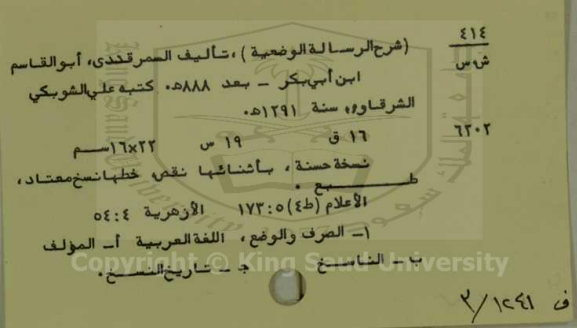 ٤١٤
ش س
(شرح الرسالة الوضعية)، تأليف السمرقندى، أبو القاسم
ابن أبي بكر - بعد ٨٨٨هـ. كتبه علي الشوبكي
الشرقاوى سنة ١٢٩١هـ.
٦٢٠٢
١٦ ق ١٩ س ٢٢×١٦ سم
نسخة حسنة، بأثنائها نقص، خطها نسخ معتاد،
طبع.
الأعلام (ط٤) ٥: ١٧٣ الأزهرية ٤: ٥٤
١- الصرف والوضع، اللغة العربية أ- المؤلف
ب- الناسخ ج- تاريخ النسخ.
Copyright © King Saud University
ف ١٢٤١/٣
King Saud University